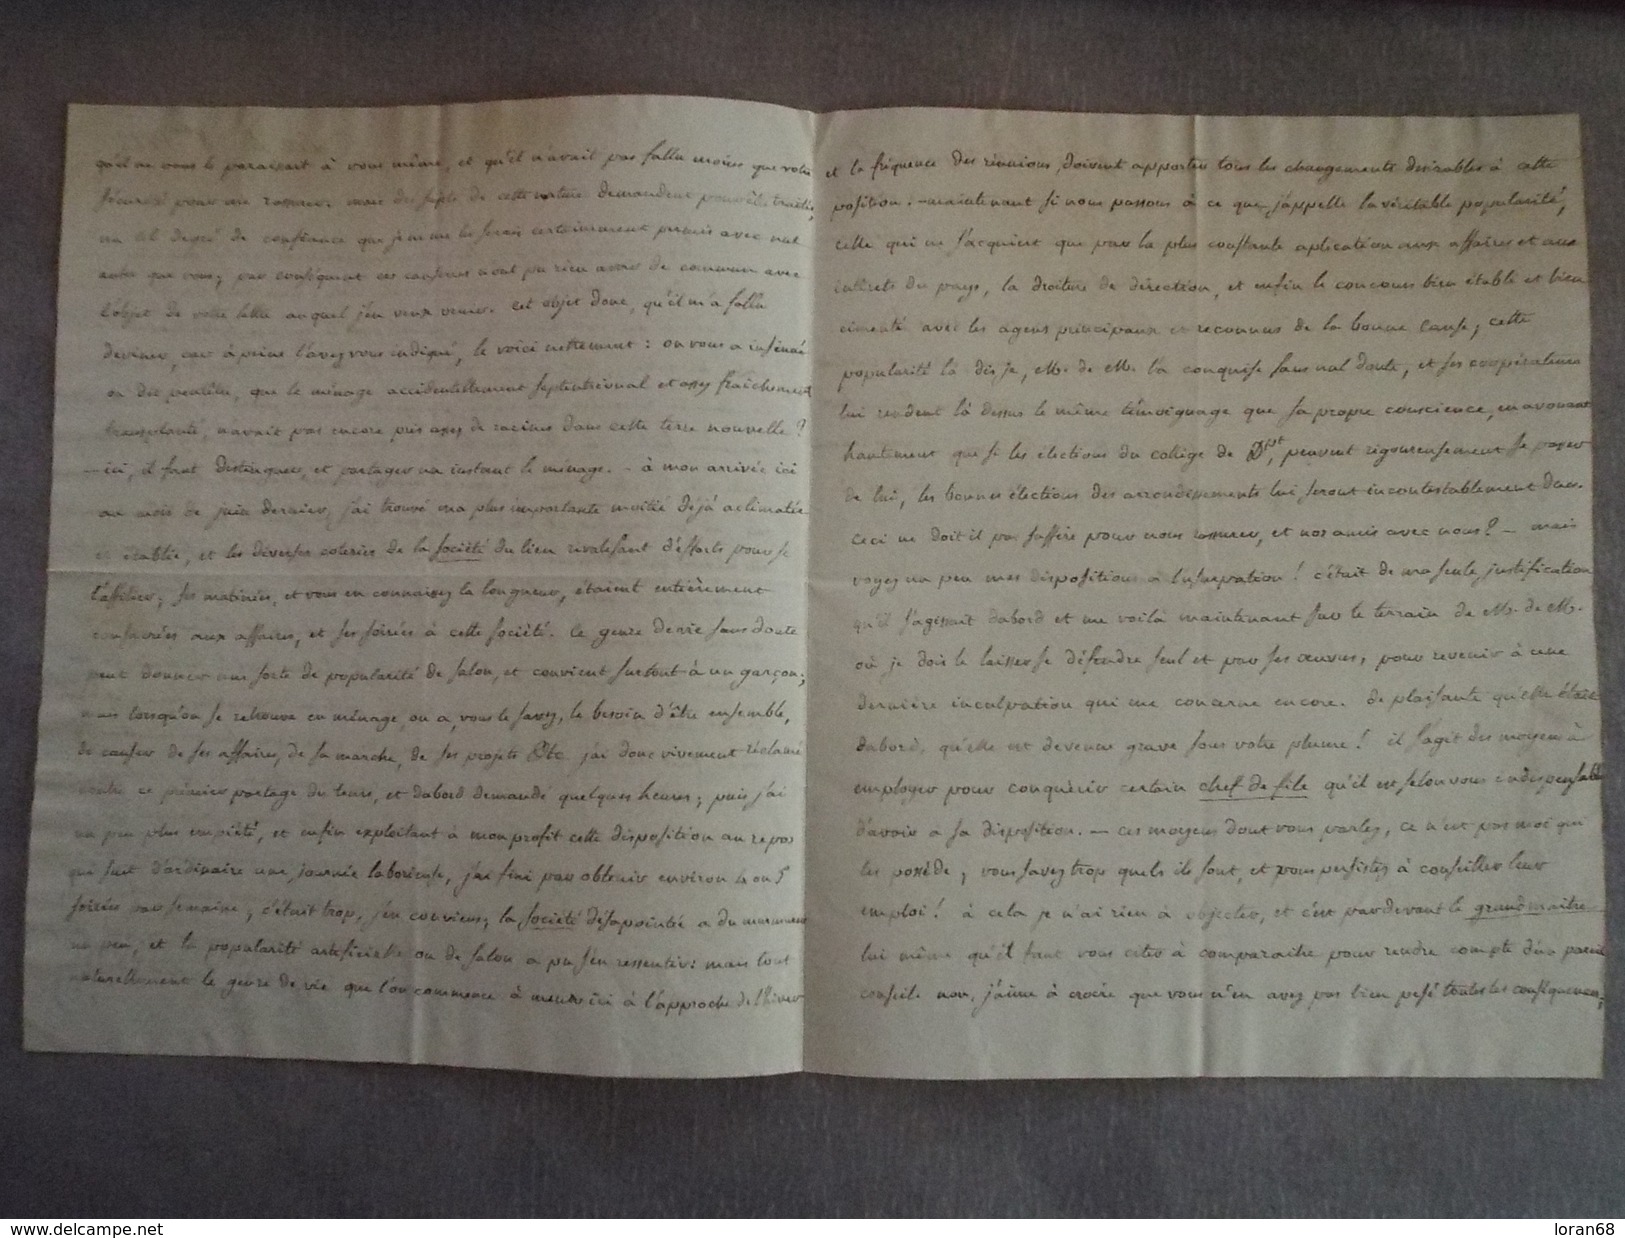 qu'il ne vous le paraissait à vous même, et qu'il n'avait pas fallu moins que votre
sécurité pour me rassurer. mais des sujets de cette nature demandent pour être traités,
un tel degré de confiance que je ne me les serais certainement permis avec nul
autre que vous; par conséquent ces causeries n'ont pu rien avoir de commun avec
l'objet de votre lettre auquel j'en veux venir. cet objet donc, qu'il m'a fallu
deviner, car à peine l'avez vous indiqué, le voici nettement: on vous a insinué
ou dit peutêtre, que le ménage accidentellement septentrional et assez fraîchement
transplanté, n'avait pas encore pris assez de racines dans cette terre nouvelle?
— ici, il faut distinguer, et partager un instant le ménage. — à mon arrivée ici
au mois de juin dernier, j'ai trouvé ma plus importante moitié déjà aclimatée
et établie, et les diverses coteries de la société du lieu rivalisant d'efforts pour se
ses matinées, et vous en connaissez la longueur, étaient entièrement
consacrées aux affaires, et ses soirées à cette société. ce genre de vie sans doute
peut donner une sorte de popularité de salon, et convient surtout à un garçon;
mais lorsqu'on se retrouve en ménage on a, vous le savez, le besoin d'être ensemble,
de causer de ses affaires, de sa marche, de ses projets etc. j'ai donc vivement réclamé
contre ce premier partage du tems, et dabord demandé quelques heures; puis j'ai
un peu plus empiété, et enfin exploitant à mon profit cette disposition au repos
qui suit d'ordinaire une journée laborieuse, j'ai fini par obtenir environ 4 ou 5
soirées par semaine; c'était trop, j'en conviens; la société désapointée a du murmurer
un peu, et la popularité artificielle ou de salon a pu s'en ressentir: mais tout
naturellement le genre de vie que l'on commence à mener ici à l'approche de l'hiver
et la fréquence des réunions, doivent apporter tous les changements desirables à cette
position. — maintenant si nous passons à ce que j'appelle la véritable popularité,
celle qui ne s'acquiert que par la plus constante aplication aux affaires et aux
intérets du pays, la droiture de direction, et enfin le concours bien établi et bien
cimenté avec les agens principaux et reconnus de la bonne cause; cette
popularité là dis je, M. de M. l'a conquise sans nul doute, et ses coopérateurs
lui rendent là dessus le même témoignage que sa propre conscience, en avouant
hautement que si les élections du collège de Dpt, peuvent rigoureusement se passer
de lui, les bonnes élections des arrondissements lui seront incontestablement dues.
ceci ne doit il pas suffire pour nous rassurer, et nos amis avec nous? — mais
voyez un peu mes dispositions à l'usurpation! c'était de ma seule justification
qu'il s'agissait dabord et me voilà maintenant sur le terrain de M. de M.
où je dois le laisser se défendre seul et par ses œuvres, pour revenir à une
dernière inculpation qui me concerne encore. de plaisante qu'elle était
dabord, qu'elle est devenue grave sous votre plume! il s'agit des moyens à
employer pour conquérir certain chef de file qu'il est selon vous indispensable
d'avoir à sa disposition. — ces moyens dont vous parlez, ce n'est pas moi qui
les possède; vous savez trop quels ils sont, et vous persistez à conseiller leur
emploi! à cela je n'ai rien à objecter, et c'est par devant le grand maître
lui même qu'il faut vous citer à comparaitre pour rendre compte d'un pareil
conseil. non, j'aime à croire que vous n'en avez pas bien pesé toutes les conséquences;
www.delcampe.net
loran68